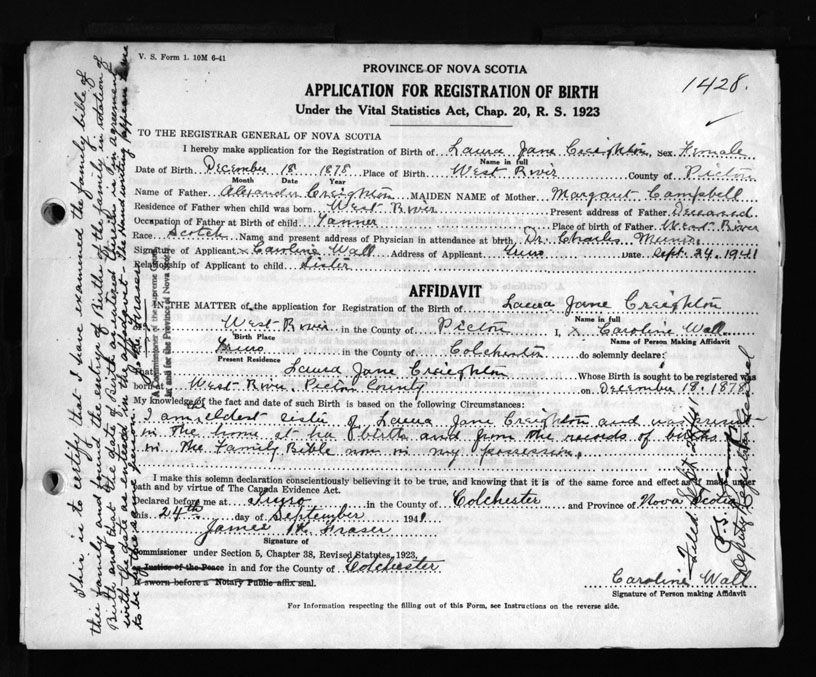 V. S. Form 1. 10M 6-41
PROVINCE OF NOVA SCOTIA
1428.
APPLICATION FOR REGISTRATION OF BIRTH
Under the Vital Statistics Act, Chap. 20, R. S. 1923
TO THE REGISTRAR GENERAL OF NOVA SCOTIA
I hereby make application for the Registration of Birth of Laura Jane Creighton, Sex Female
Name in full
Date of Birth December 18 1878 Place of Birth West River County of Pictou
Month Date Year
Name of Father Alexander Creighton MAIDEN NAME of Mother Margaret Campbell
Residence of Father when child was born West River Present address of Father Deceased
Occupation of Father at Birth of child Tanner Place of birth of Father West River
Race Scotch Name and present address of Physician at attendance at birth Dr. Charles Munro
Signature of Applicant x Caroline Wall Address of Applicant Truro Date Sept. 24, 1941
Relationship of Applicant to child Sister
AFFIDAVIT
IN THE MATTER of the application for Registration of the Birth of Laura Jane Creighton
Name in full
West River in the County of Pictou I, x Caroline Wall
Birth Place Name of Person Making Affidavit
Truro in the County of Colchester do solemnly declare:
Present Residence
that Laura Jane Creighton Whose Birth is sought to be registered was
born at West River Pictou County on December 18, 1878
My knowledge of the fact and date of such Birth is based on the following Circumstances:
I am the eldest sister of Laura Jane Creighton and was present
in the home at her birth and from the records of births
in the Family Bible now in my possession.
I make this solemn declaration conscientiously believing it to be true, and knowing that it is of the same force and effect as if made under
oath and by virtue of The Canada Evidence Act.
Declared before me at Truro in the County of Colchester and Province of Nova Scotia
this 24th day of September 1941
James Fraser
Signature of
Commissioner under Section 5, Chapter 38, Revised Statutes, 1923,
or Justice of the Peace in and for the County of Colchester
If sworn before a Notary Public affix seal.
Caroline Wall
Signature of Person making Affidavit
For Information respecting the filling out of this Form, see Instructions on the reverse side.
This is to certify that I have examined the family bible of
this family and found the entry of Birth of the family in rotation of
Birth and that the date of Birth entered therein is in agreement
with the date as entered in the affidavit - The Handwriting appears
to be of the same person.
A Commissioner of the Supreme Court
in and for the Province of Nova Scotia
Filed Sept.
Deputy Registrar General